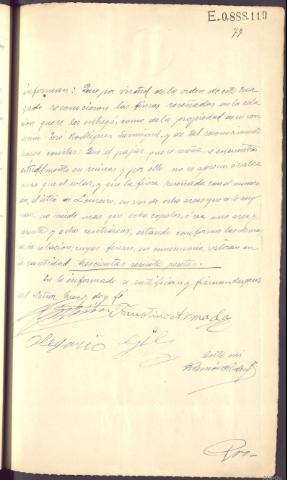 E.0.888.119
79
informan: Que por virtud de la orden de este Juz-
gado reconocieron las fincas reseñadas en la rela-
ción que se les entregó, como de la propiedad de su con-
vecino José Rodríguez, y de tal reconocimiento
hacen constar: Que el pajar que se reseña se encuentra
en ruinas y por ello no se aprecia o valora
mas que el solar, y que la finca reseñada con el número
en, al sitio de Loureiro, en vez de ocho areas que se le asig-
nan, no mide mas que ocho copelos, o sea una area y
veinte y ocho centiareas, estando conforme las demas
de la relación, cuyas fincas, en valoran en
la cantidad trescientas sesenta pesetas.
En lo informado se ratifican y firman despues
del Señor Juez, doy fe
Faustino Armada
Olegario Gil
Ante mi